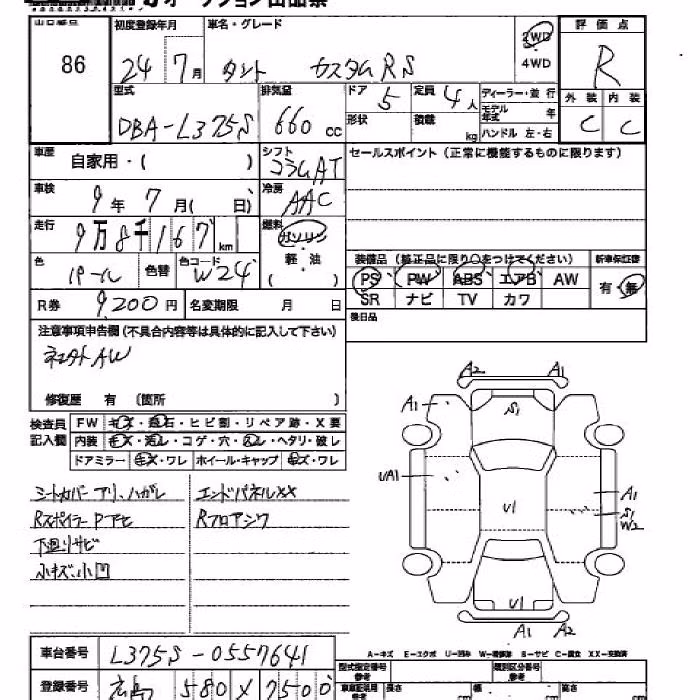 86
初度登録年月
24 7月
車名・グレード
タント カスタムRS
2WD
4WD
評価点
R
外装 内装
C C
型式
DBA-L375S
排気量
660 cc
ドア 5
形状
定員 4人
積載 kg
ディーラー・並行
モデル年式 年
ハンドル 左・右
車歴
自家用・( )
シフト
コラムAT
セールスポイント(正常に機能するものに限ります)
車検
9年 7月( 日)
冷房
AAC
走行
9万8千167km
燃料
ガソリン
軽・油
( )
色
パール
色替
色コード
W24
装備品(純正品に限り○をつけてください)
新車保証書
PS PW ABS エアB AW
有・無
SR ナビ TV カワ
R券 9,200円
名変期限 月 日
後日品
注意事項申告欄(不具合内容等は具体的に記入して下さい)
社外AW
修復歴 有 〔箇所 〕
検査員記入欄
FW キズ・飛石・ヒビ割・リペア跡・X要
内装 キズ・汚レ・コゲ・穴・スレ・ヘタリ・破レ
ドアミラー キズ・ワレ ホイール・キャップ キズ・ワレ
シートカバーアリ、ハガレ
エンドパネルXX
Rスポイラー Pアセ
Rフロアシワ
下廻リサビ
小キズ、小凹
A2 A1
A1 S1
UA1
U1
A1
S1
W2
U1
A1 A2
A-キズ E-エクボ U-凹み W-補修跡 S-サビ C-腐食 XX-交換済
車台番号 L375S-0557641
登録番号
580 X 7500
型式指定番号 参考
類別区分番号 参考
長さ cm
幅 cm
高さ cm